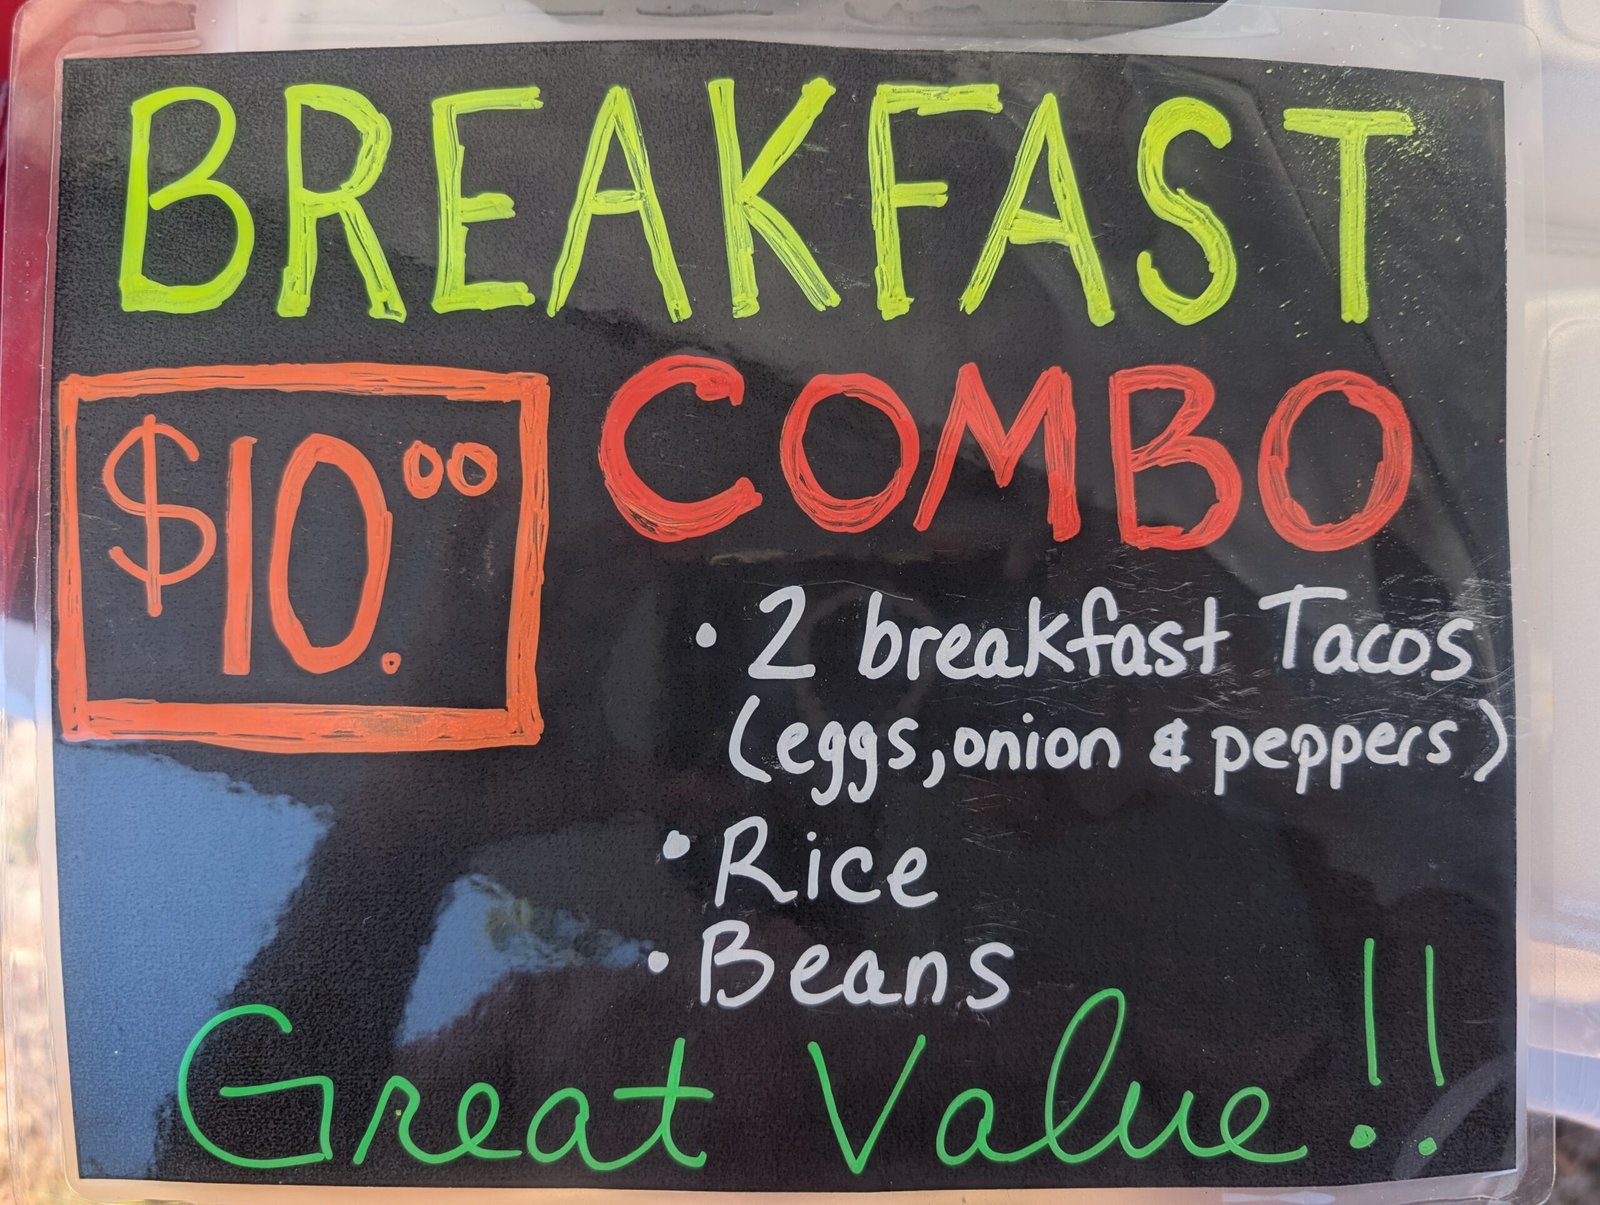 BREAKFAST
COMBO
$10.00
• 2 breakfast Tacos
(eggs, onion & peppers)
• Rice
• Beans
Great Value!!